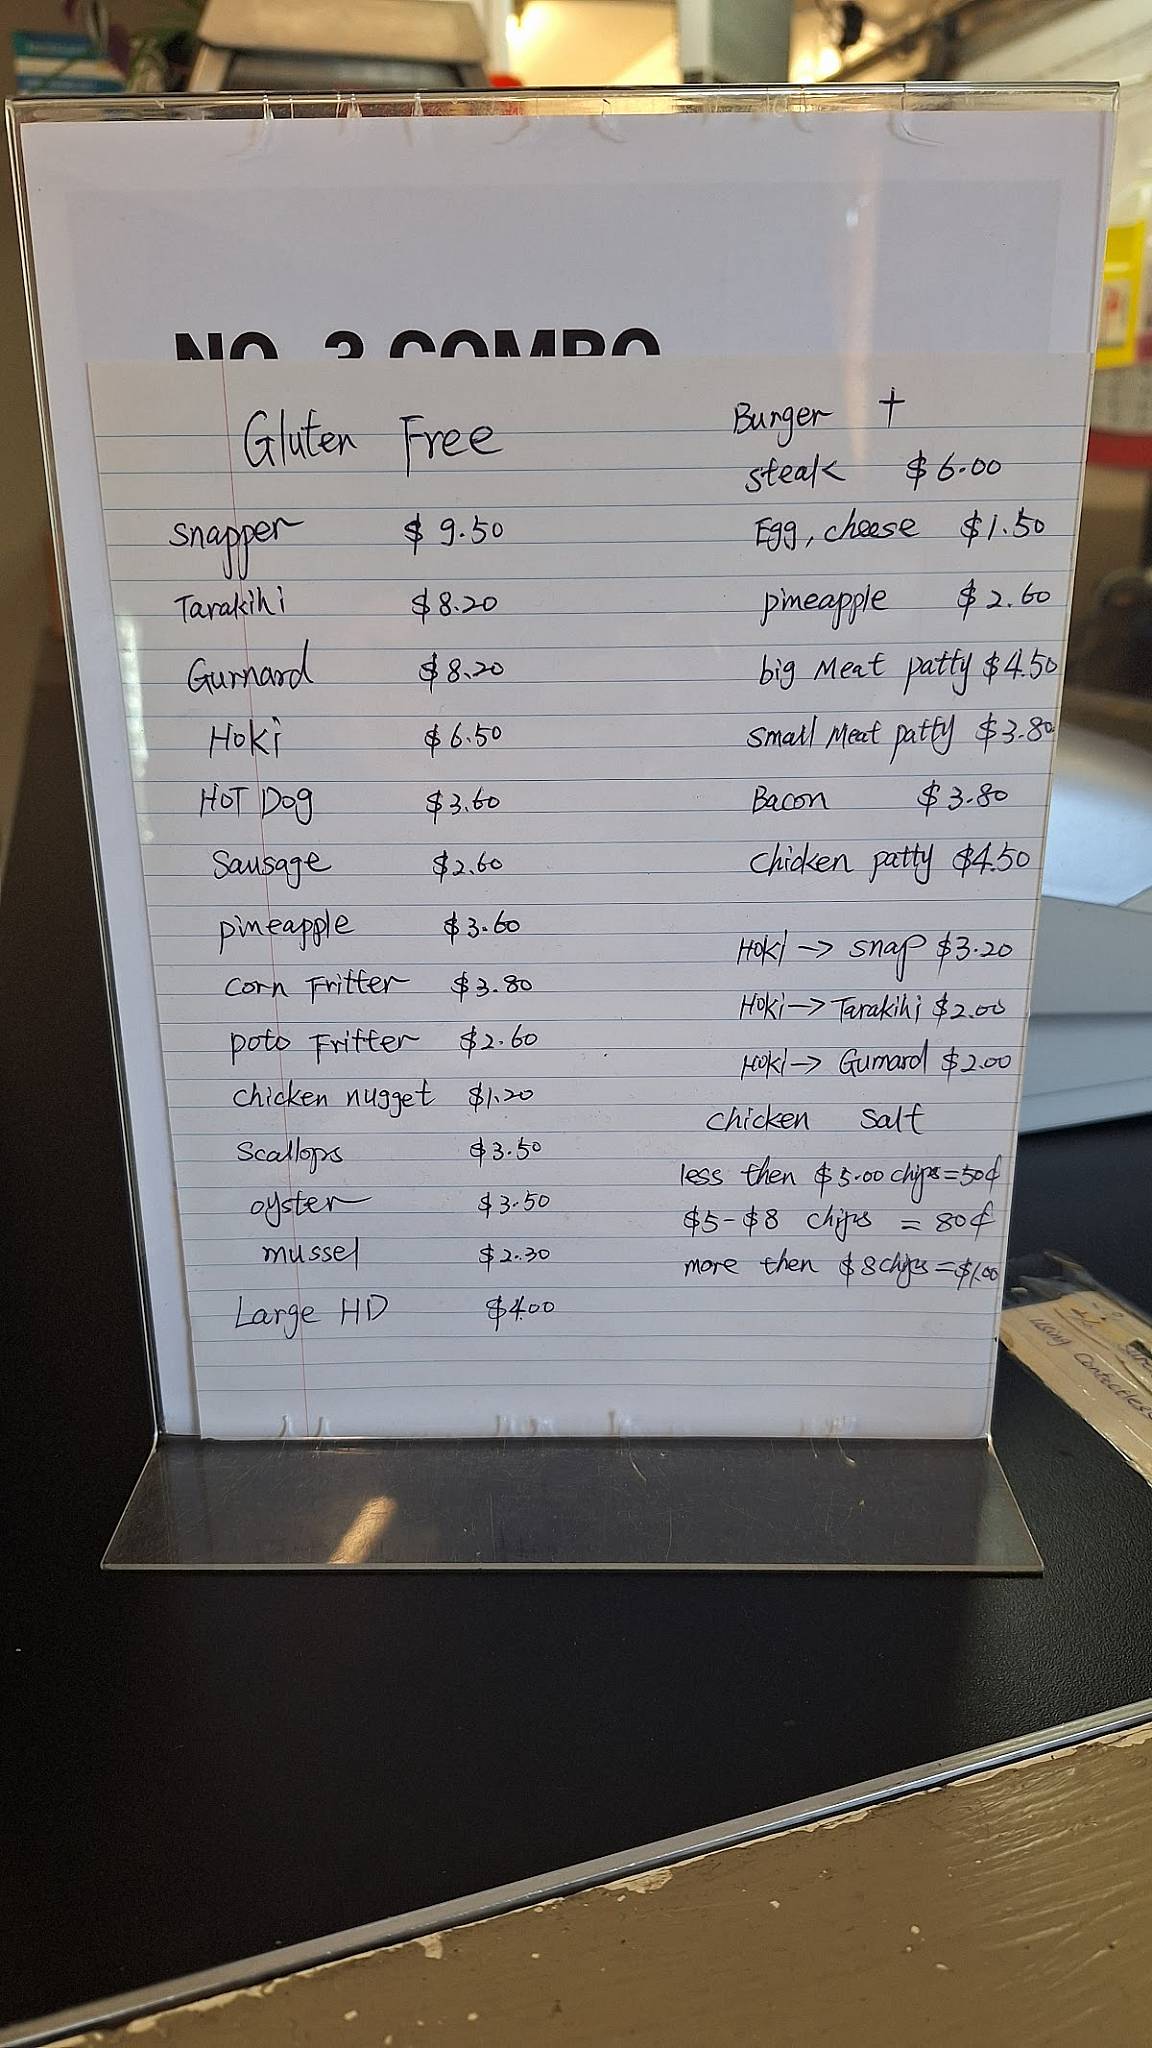 NO. 3 COMBO
Gluten Free
Snapper $9.50
Tarakihi $8.20
Gurnard $8.20
Hoki $6.50
HOT Dog $3.60
Sausage $2.60
pineapple $3.60
corn Fritter $3.80
poto Fritter $2.60
chicken nugget $1.20
Scallops $3.50
oyster $3.50
mussel $2.30
Large HD $4.00
Burger +
steak $6.00
Egg, cheese $1.50
pineapple $2.60
big Meat patty $4.50
Small Meat patty $3.80
Bacon $3.80
chicken patty $4.50
Hoki → snap $3.20
Hoki → Tarakihi $2.00
Hoki → Gurnard $2.00
chicken Salt
less then $5.00 chips = 50¢
$5 - $8 chips = 80¢
more then $8 chips = $1.00
using Contectless